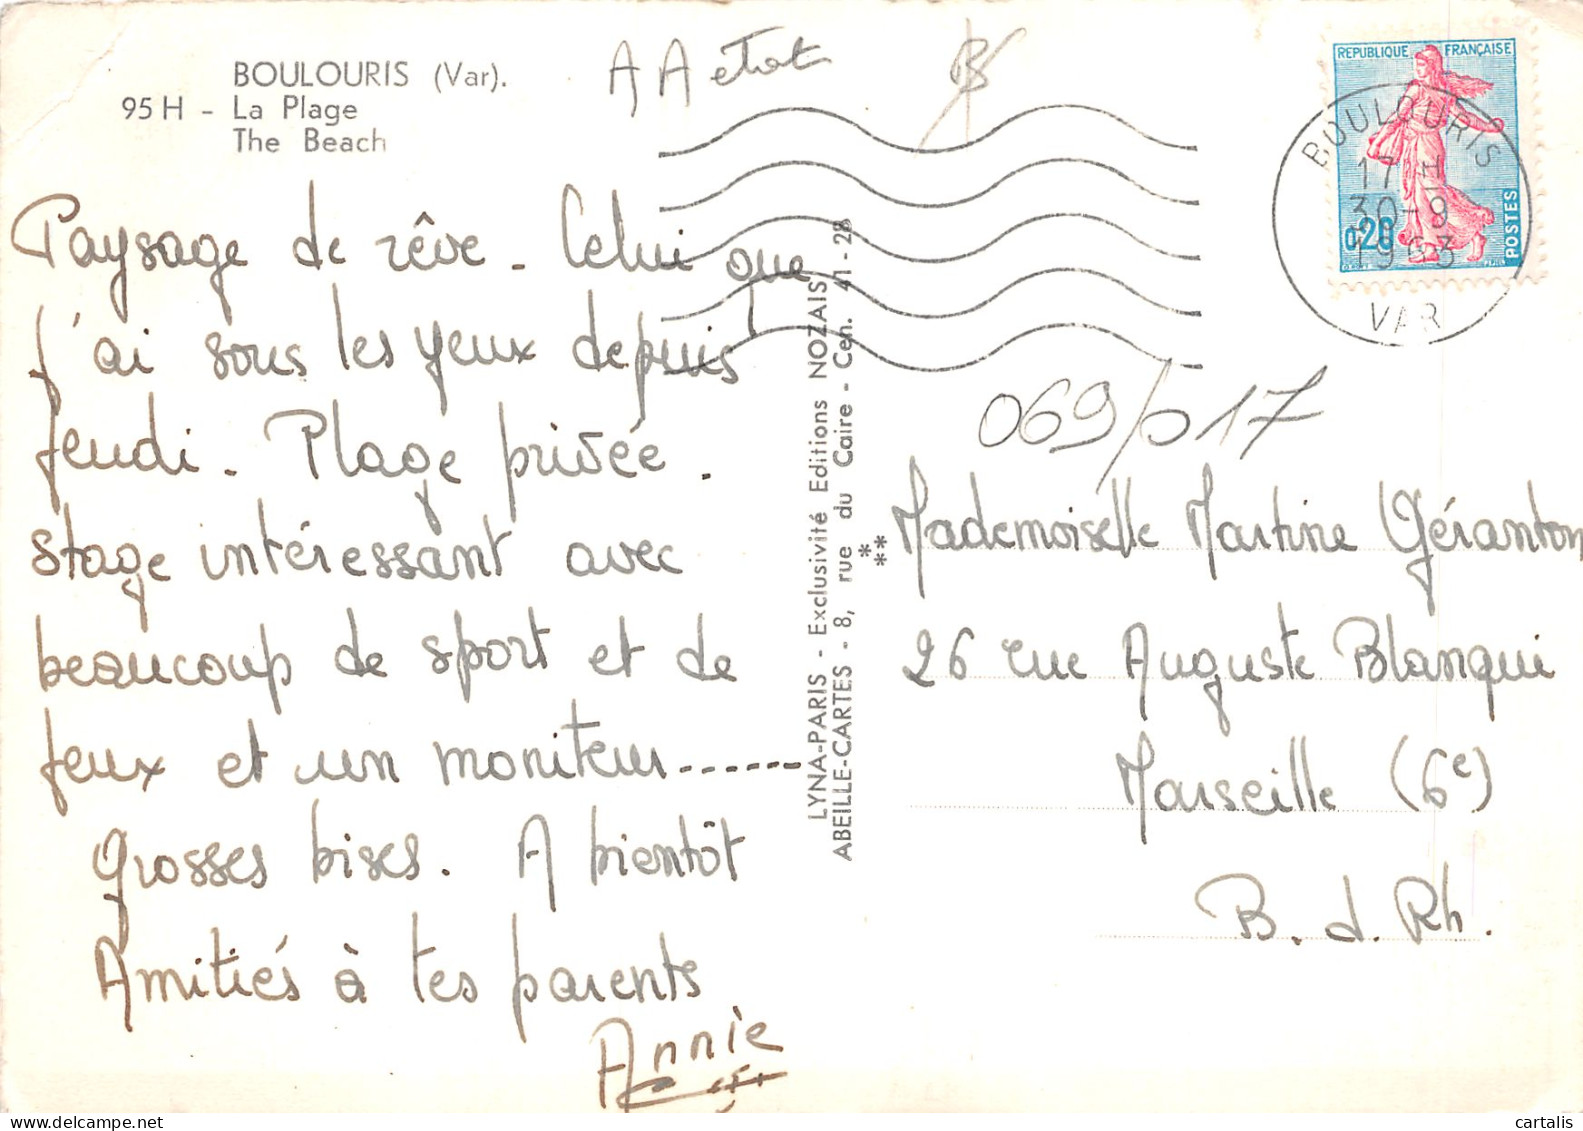 BOULOURIS (Var).
95 H - La Plage
The Beach
Paysage de rêve. Celui que
j'ai sous les yeux depuis
jeudi. Plage privée.
stage intéressant avec
beaucoup de sport et de
jeux et un moniteur......
Grosses bises. A bientôt
Amitiés à tes parents
Annie
LYNA-PARIS - Exclusivité Editions NOZAIS
ABEILLE-CARTES - 8, rue du Caire - Cen. 41-28
REPUBLIQUE FRANÇAISE
0,20
POSTES
BOULOURIS
17 H
30-9
1963
VAR
069/017
Mademoiselle Martine Géranton
26 rue Auguste Blanqui
Marseille (6e)
B. d. Rh.